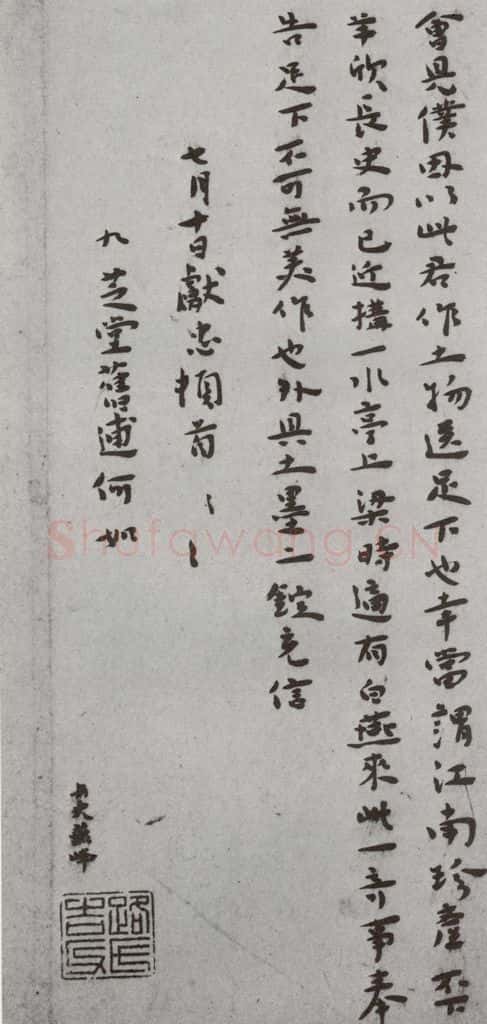 會見僕因以此君作土物送足下也幸當謂江南珍產不下
羊欣長史而已近搆一水亭上梁時適有白燕來此一奇事奉
告足下不可無美作也外具土墨二錠充信
七月十日獻忠頓首
九芝堂舊逋何如
Shufawang.CN